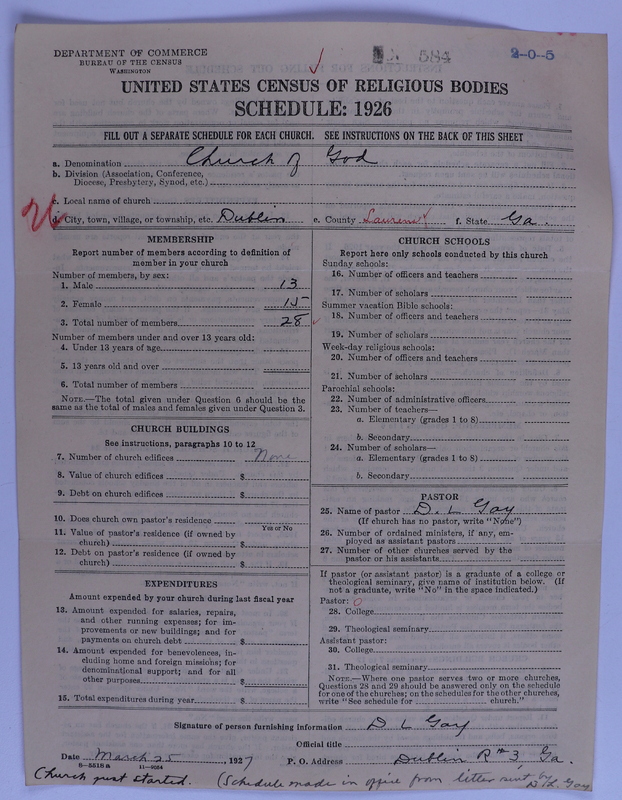 584
2-0-5
DEPARTMENT OF COMMERCE
BUREAU OF THE CENSUS
WASHINGTON
UNITED STATES CENSUS OF RELIGIOUS BODIES
SCHEDULE: 1926
FILL OUT A SEPARATE SCHEDULE FOR EACH CHURCH. SEE INSTRUCTIONS ON THE BACK OF THIS SHEET
a. Denomination Church of God
b. Division (Association, Conference,
Diocese, Presbytery, Synod, etc.)
c. Local name of church
d. City, town, village, or township, etc. Dublin e. County Laurens f. State Ga.
MEMBERSHIP
Report number of members according to definition of
member in your church
Number of members, by sex:
1. Male 13
2. Female 15
3. Total number of members 28
Number of members under and over 13 years old:
4. Under 13 years of age
5. 13 years old and over
6. Total number of members
NOTE.—The total given under Question 6 should be
same as the total of males and females given under Question 3.
CHURCH BUILDINGS
See instructions, paragraphs 10 to 12
7. Number of church edifices None
8. Value of church edifices $
9. Debt on church edifices $
10. Does church own pastor's residence
Yes or No
11. Value of pastor's residence (if owned by
church) $
12. Debt on pastor's residence (if owned by
church) $
EXPENDITURES
Amount expended by your church during last fiscal year
13. Amount expended for salaries, repairs,
and other running expenses; for im-
provements or new buildings; and for
payments on church debt $
14. Amount expended for benevolences, in-
cluding home and foreign missions; for
denominational support; and for all
other purposes $
15. Total expenditures during year $
CHURCH SCHOOLS
Report here only schools conducted by this church
Sunday schools:
16. Number of officers and teachers
17. Number of scholars
Summer vacation Bible schools:
18. Number of officers and teachers
19. Number of scholars
Week-day religious schools:
20. Number of officers and teachers
21. Number of scholars
Parochial schools:
22. Number of administrative officers
23. Number of teachers—
a. Elementary (grades 1 to 8)
b. Secondary
24. Number of scholars—
a. Elementary (grades 1 to 8)
b. Secondary
PASTOR
25. Name of pastor D. L. Gay
(If church has no pastor, write "None")
26. Number of ordained ministers, if any, em-
ployed as assistant pastors
27. Number of other churches served by the
pastor or his assistants
If pastor (or assistant pastor) is a graduate of a college or
theological seminary, give name of institution below. (If
not a graduate, write "No" in the space indicated.)
Pastor: 0
28. College
29. Theological seminary
Assistant pastor:
30. College
31. Theological seminary
NOTE.—Where one pastor serves two or more churches,
Questions 28 and 29 should be answered only on the schedule
for one of the churches; on the schedules for the other churches,
write "See schedule for church."
Signature of person furnishing information D L Gay
Official title
Date March 25, 1927 P. O. Address Dublin R#3, Ga.
8-5518a 11-9054
Church just started. (Schedule made in office from letter sent by
D. L. Gay.